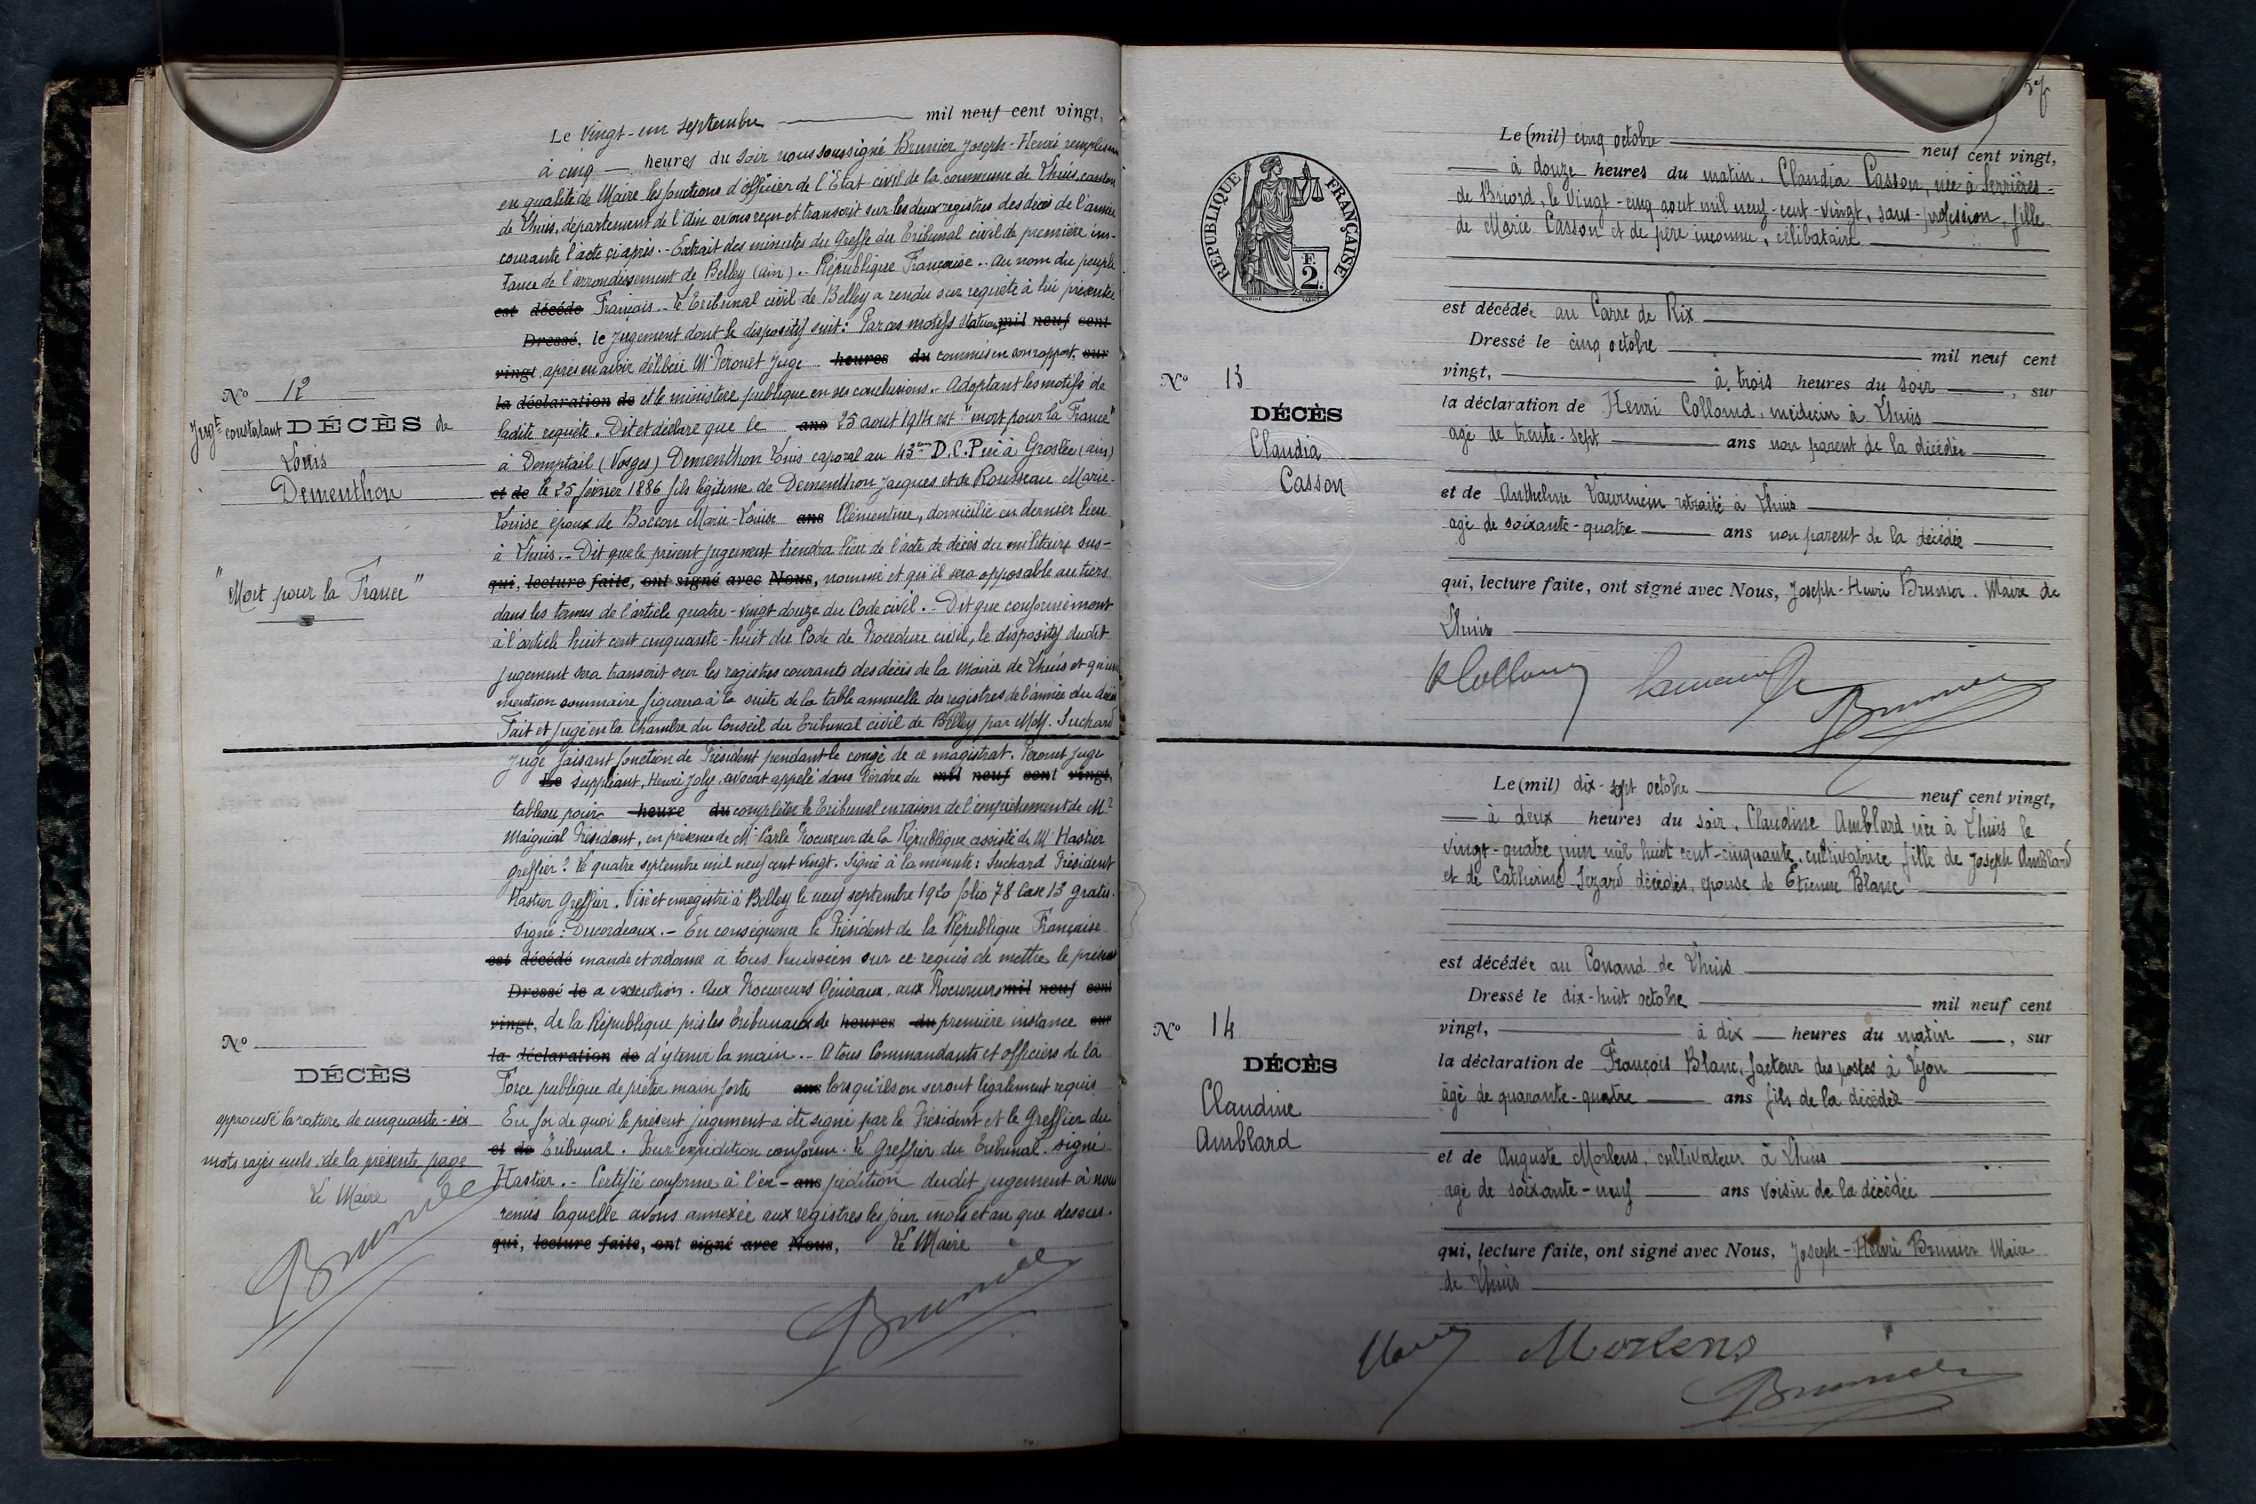 Le vingt-un septembre mil neuf cent vingt,
à cinq heures du soir nous soussigné Brunier Joseph-Henri remplissant
en qualité de Maire les fonctions d'officier de l'Etat civil de la commune de Lhuis, canton
de Lhuis, département de l'Ain avons reçu et transcrit sur les deux registres des décès de l'année
courante l'acte ci après.- Extrait des minutes du Greffe du Tribunal civil de première ins-
tance de l'arrondissement de Belley (ain).- République Française.- Au nom du peuple
est décédé Français.- Le Tribunal civil de Belley a rendu sur requête à lui présentée
Dressé, le jugement dont le dispositif suit: Par ces motifs Statuant mil neuf cent
vingt, après en avoir délibéré Mr Perouet Juge heures du commis en son rapport, sur
la déclaration de et le ministère publique en ses conclusions.- Adoptant les motifs de
ladite requête. Dit et déclare que le ans 25 aout 1914 est "mort pour la France"
N° 12
Jugt constatant DÉCÈS de
Louis
Dementhon
"Mort pour la France"
à Domptail (Vosges) Dementhon Louis caporal au 43ème D.C.P né à Groslée (ain)
et de le 25 février 1886 fils légitime de Dementhon Jacques et de Rousseau Marie-
Louise époux de Boccon Marie-Louise ans Clémentine, domicilié en dernier lieu
à Lhuis.- Dit que le présent jugement tiendra lieu de l'acte de décès du militaire sus-
qui, lecture faite, ont signé avec Nous, nommé et qu'il sera opposable au tiers
dans les termes de l'article quatre-vingt douze du Code civil.- Dit que conformément
à l'article huit cent cinquante-huit du Code de Procédure civile, le dispositif dudit
jugement sera transcrit sur les registres courants des décès de la mairie de Lhuis et qu'une
mention sommaire figurera à la suite de la table annuelle des registres de l'année du décès
Fait et jugé en la Chambre du Conseil du Tribunal civil de Belley par MM. Suchard
Juge faisant fonction de Président pendant le congé de ce magistrat. Perouet Juge
Le suppléant, Henri Joly avocat appelé dans l'ordre du mil neuf cent vingt,
tableau pour heure du compléter le Tribunal en raison de l'empêchement de Mr
Maiguial Président, en présence de Mr Carle Procureur de la République assisté de Mr Hastier
greffier. Le quatre septembre mil neuf cent vingt. Signé à la minute: Suchard Président
Hastier Greffier. Visé et enregistré à Belley le neuf septembre 1920 folio 78 Case 13 gratis.
Signé: Ducordeaux.- En conséquence le Président de la République Française
est décédé mande et ordonne a tous huissiers sur ce requis de mettre le présent
Dressé le a exécution. Aux Procureurs Généraux, aux Procureurs mil neuf cent
vingt, de la République près les Tribunaux de heures du première instance sur
la déclaration de d'y tenir la main.- A tous Commandants et officiers de la
Force publique de prêter main forte ans lorsqu'ils en seront légalement requis
En foi de quoi le présent jugement a été signé par le Président et le Greffier du
et de Tribunal. Pour expédition conforme. Le Greffier du Tribunal. signé
Hastier.- Certifié conforme à l'ex- ans pédition dudit jugement à nous
remis laquelle avons annexée aux registres les jour mois et an que dessus.
qui, lecture faite, ont signé avec Nous, Le Maire
Brunier
N°
DÉCÈS
approuvé la rature de cinquante-six
mots rayés nuls de la présente page
Le Maire
Brunier
57
Le (mil) cinq octobre neuf cent vingt,
à douze heures du matin. Claudia Casson, née à Serrières-
de Briord, le vingt-cinq aout mil neuf-cent-vingt, sans-profession, fille
de Marie Casson et de père inconnu, célibataire
est décédée au Carre de Rix
Dressé le cinq octobre mil neuf cent
vingt, à trois heures du soir, sur
la déclaration de Henri Colloud, médecin à Lhuis
agé de trente-sept ans non parent de la décédée
et de Anthelme Laurencin retraité à Lhuis
agé de soixante-quatre ans non parent de la décédée
qui, lecture faite, ont signé avec Nous, Joseph-Henri Brunier. Maire de
Lhuis
RÉPUBLIQUE FRANÇAISE
F. 2.
N° 13
DÉCÈS
Claudia
Casson
Brunier
Le (mil) dix-sept octobre neuf cent vingt,
à deux heures du soir, Claudine Amblard née à Lhuis le
vingt-quatre juin mil huit cent-cinquante, cultivatrice, fille de Joseph Amblard
et de Catherine Sezard décédés, épouse de Etienne Blanc
est décédée au Conand de Lhuis
Dressé le dix-huit octobre mil neuf cent
vingt, à dix heures du matin, sur
la déclaration de François Blanc, facteur des postes à Lyon
âgé de quarante-quatre ans fils de la décédée
et de Auguste Morlens, cultivateur à Lhuis
agé de soixante-neuf ans voisin de la décédée
qui, lecture faite, ont signé avec Nous, Joseph-Henri Brunier Maire
de Lhuis
N° 14
DÉCÈS
Claudine
Amblard
Morlens
Brunier